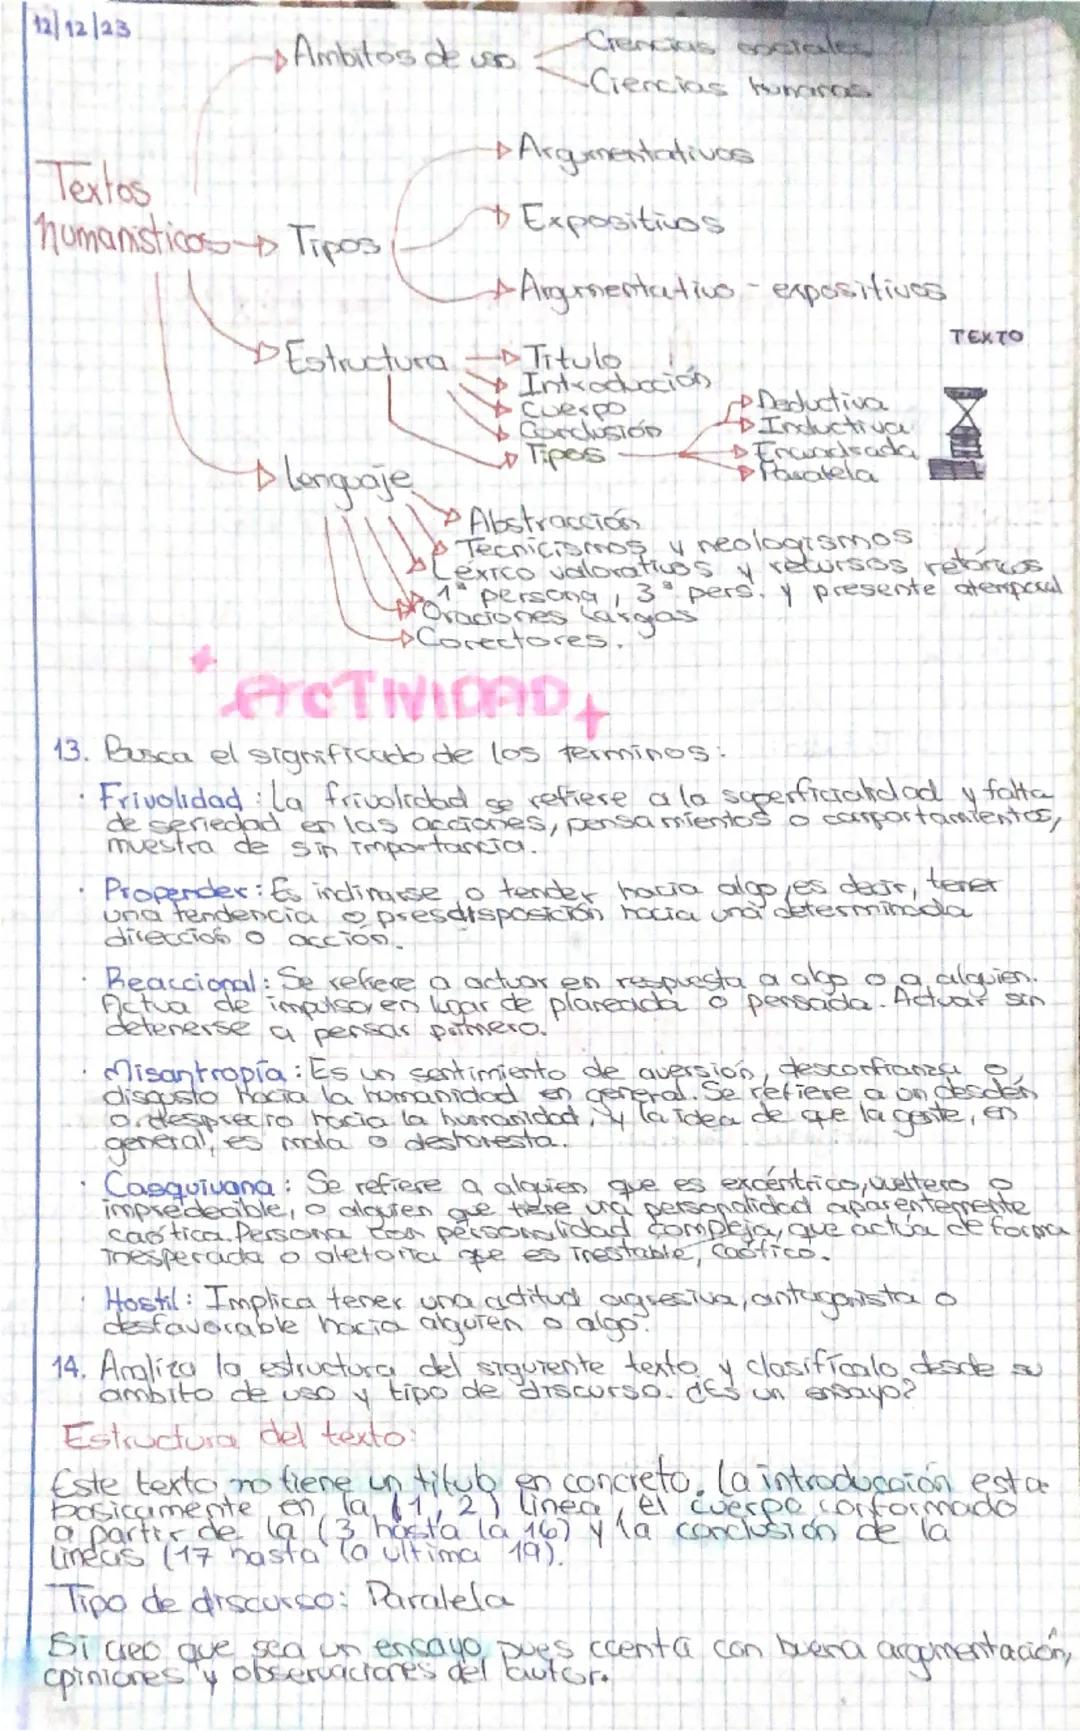 12/12/23
Ambitos de uso
Ciencias sociales
Ciencias humanas
Textos
humanísticos
Tipos
Argumentativos
Expositivos
Argumentativo - expositivos
Estructura
Título
Introducción
Cuerpo
Conclusión
Tipos
Deductiva
Inductiva
Encuadrada
Paralela
TEXTO
Lenguaje
Abstracción
Tecnicismos y neologismos
Léxico valorativos y recursos retóricos
1ª persona, 3ª pers. y presente atemporal
Oraciones largas
Conectores.
ACTIVIDAD
13. Busca el significado de los terminos:
· Frivolidad: La frivolidad se refiere a la superficialidad y falta
de seriedad en las acciones, pensamientos o comportamientos,
muestra de sin importancia.
· Propender: Es inclinarse o tender hacia algo, es decir, tener
una tendencia o presdisposición hacia una determinada
dirección o acción.
· Reaccional: Se refiere a actuar en respuesta a algo o a alguien.
Actua de impulso en lugar de planeada o pensada. Actuar sin
detenerse a pensar primero.
· Misantropía: Es un sentimiento de aversión, desconfianza o
disgusto hacia la humanidad en general. Se refiere a un desdén
o desprecio hacia la humanidad, y la idea de que la gente, en
general, es mala o deshonesta.
· Casquivana: Se refiere a alguien que es excéntrico, veltero o
impredecible, o alguien que tiene una personalidad aparentemente
caótica. Persona con personalidad compleja, que actúa de forma
inesperada o aletoria que es inestable, caótico.
· Hostil: Implica tener una actitud agresiva, antagonista o
desfavorable hacia alguien o algo.
14. Analiza la estructura del siguiente texto y clasifícalo desde su
ambito de uso y tipo de discurso. ¿Es un ensayo?
Estructura del texto:
Este texto no tiene un titulo en concreto. La introducción esta
basicamente en la (1, 2) linea, el cuerpo conformado
a partir de la (3 hasta la 16) y la conclusión de la
lineas (17 hasta la ultima 19).
Tipo de discurso: Paralela
Si creo que sea un ensayo, pues cuenta con buena argumentación,
opiniones y observaciones del autor.